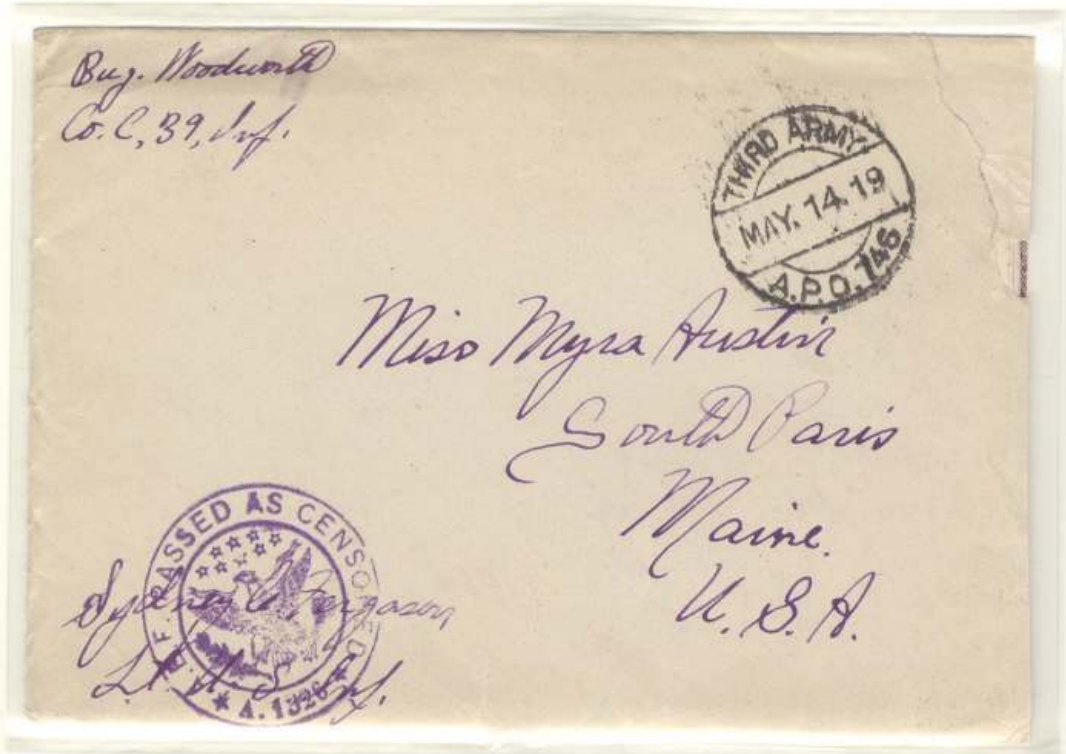 Bug. Woodworth
Co. C, 39, Inf.
THIRD ARMY
MAY. 14. 19
A.P.O. 746
Miss Myra Austin
South Paris
Maine.
U. S. A.
A.E.F. PASSED AS CENSORED
A. 1326
Sydney C Fergason
Lt. U. S. Inf.